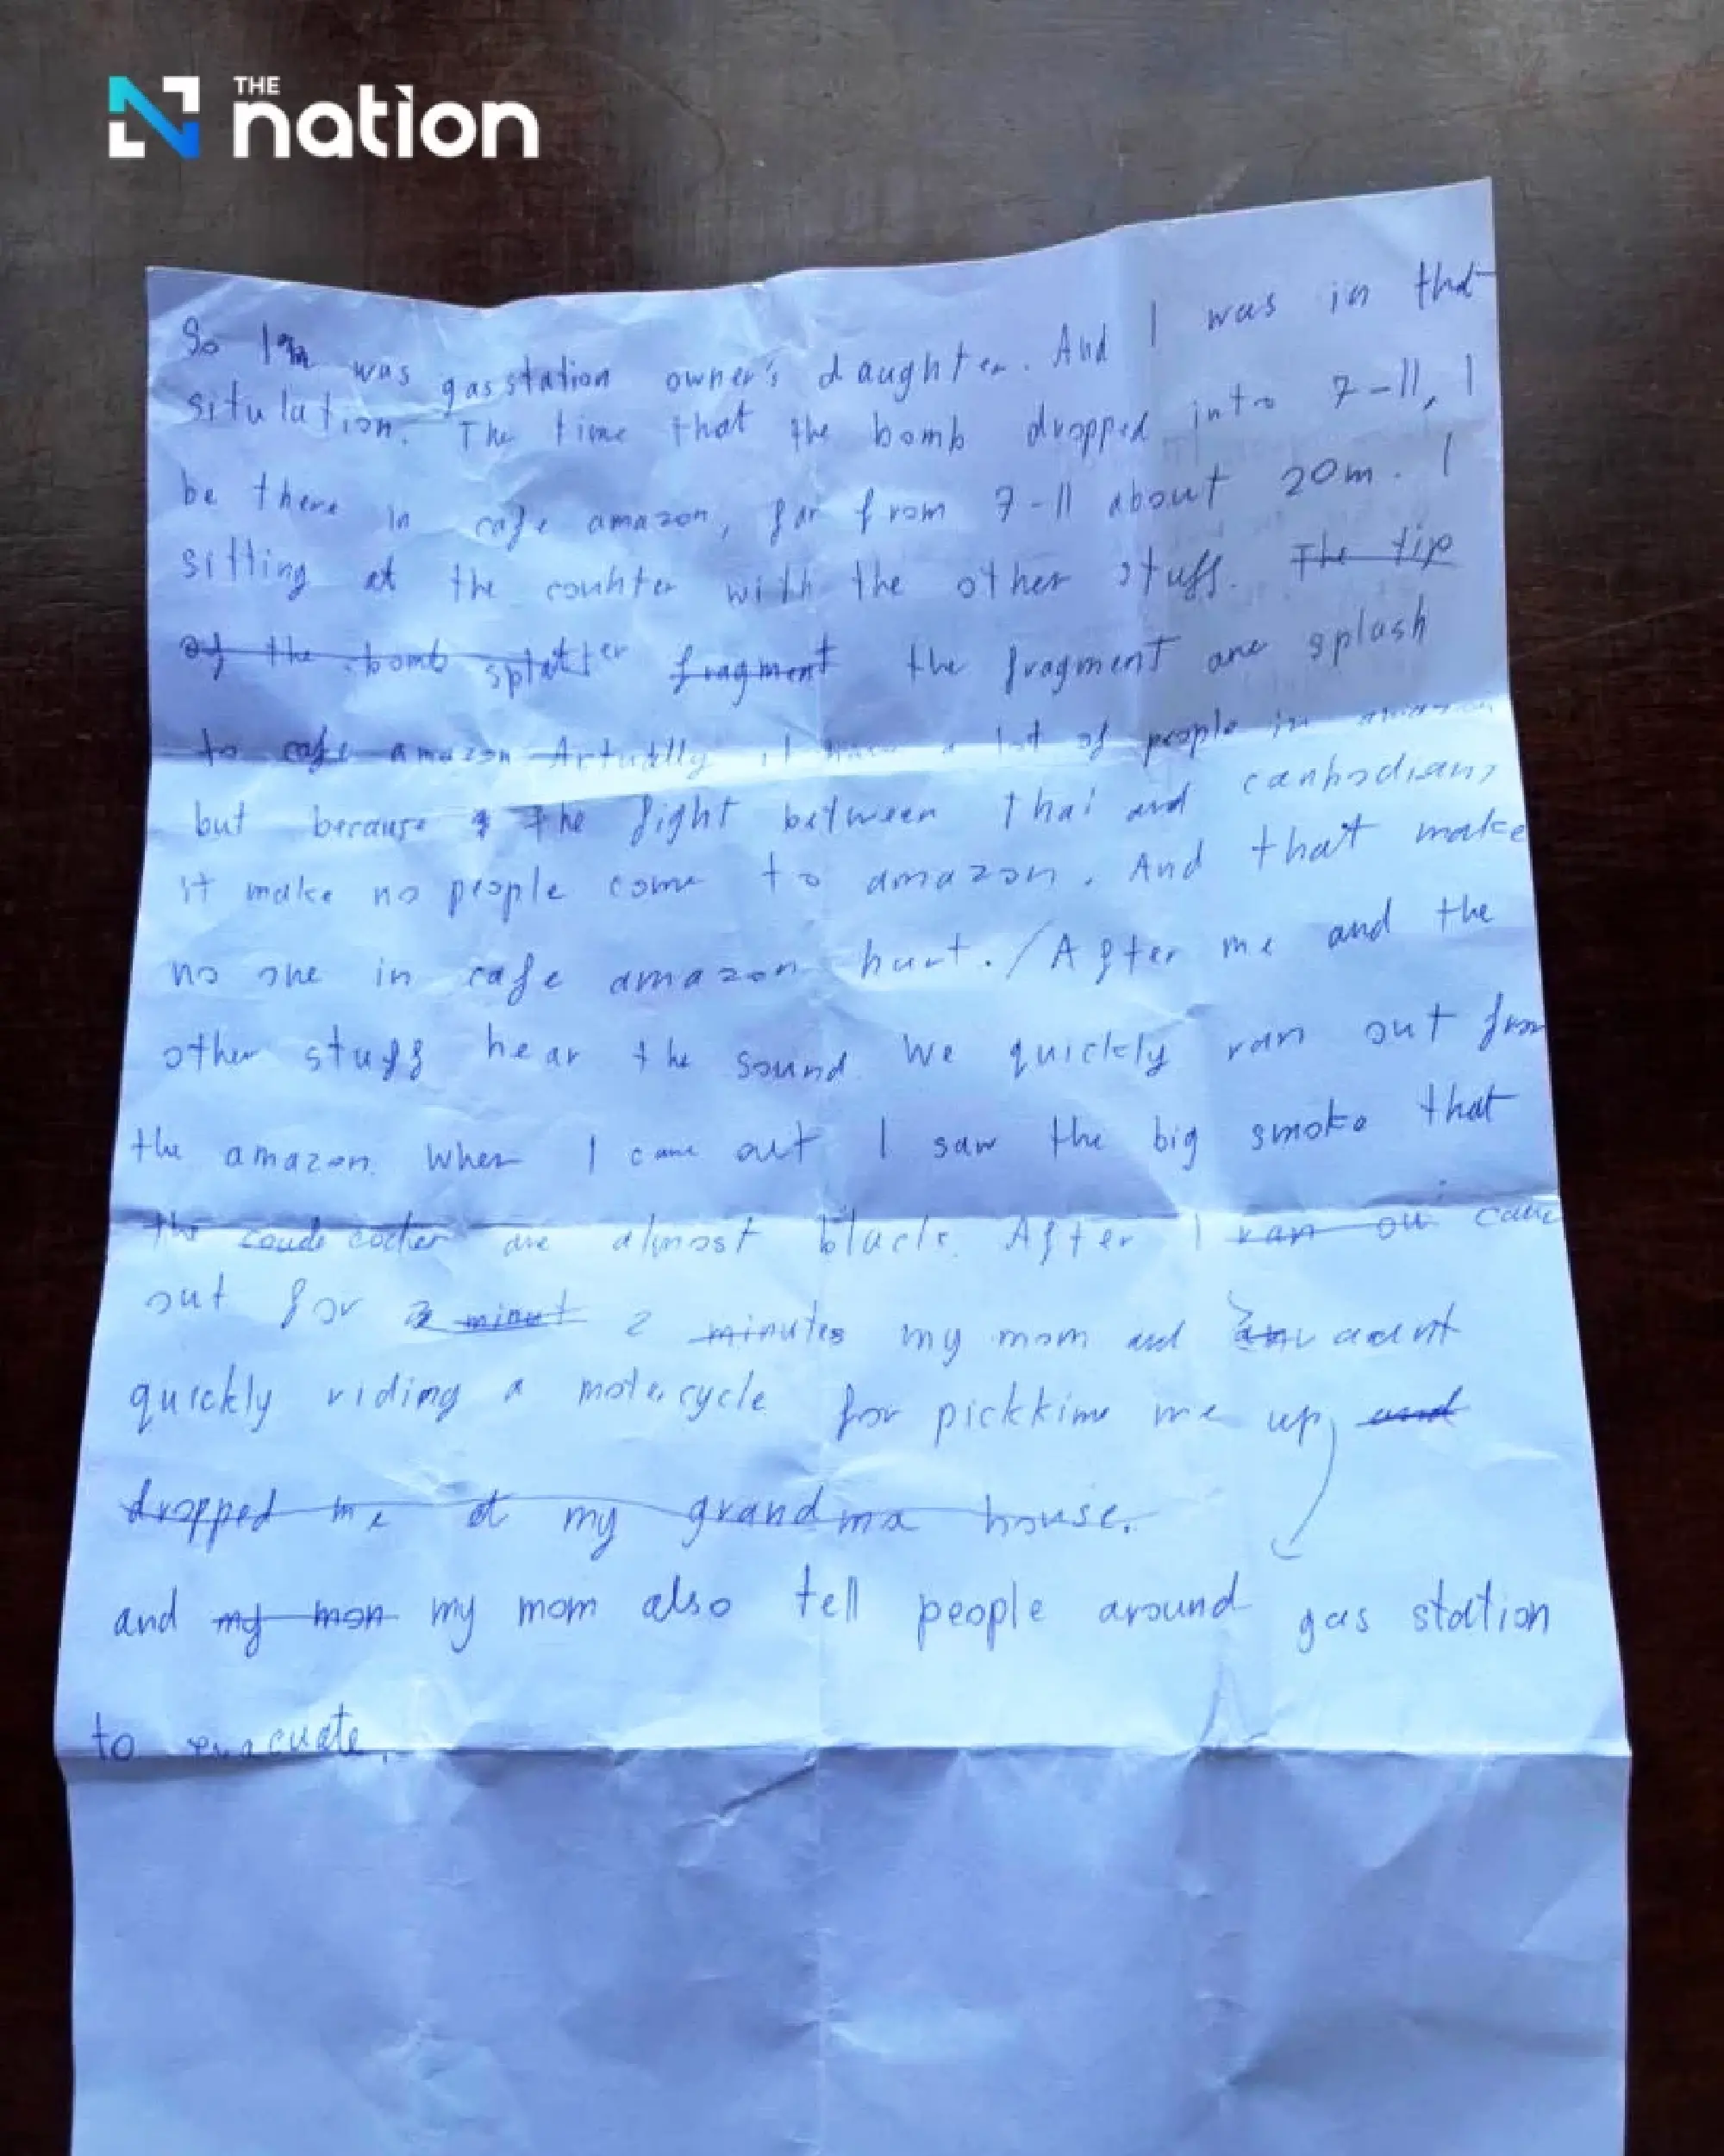 THE
nation
So I'm was gasstation owner's daughter. And I was in that
situlation. The time that the bomb dropped into 7-11, I
be there in cafe amazon, far from 7-11 about 20m. I
sitting at the counter with the other stuff. The tip
of the bomb splatter fragment the fragment are splash
to cafe amazon Artually it a lot of people in amazon
but because the fight between Thai and
it make no people come to amazon. And that make
no one in cafe amazon hurt. / After me and the
other stuff hear the sound we quickly ran out from
the amazon. When I came out I saw the big smoke that
the are almost black. After I ran ou came
out for 2 minut 2 minutes my mom and
quickly riding a motorcycle for me up, and
dropped me at my grandma house.
and my mon my mom also tell people around gas station
to evacuate.